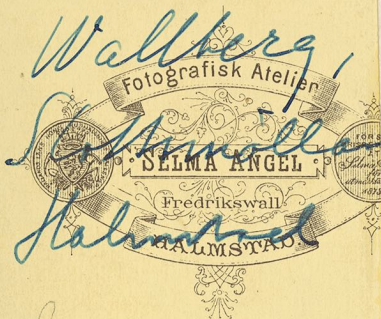 Wallberg,
Fotografisk Atelier
Slottsmöllan
SELMA ANGEL
Fredrikswall
Halmstad
HALMSTAD.